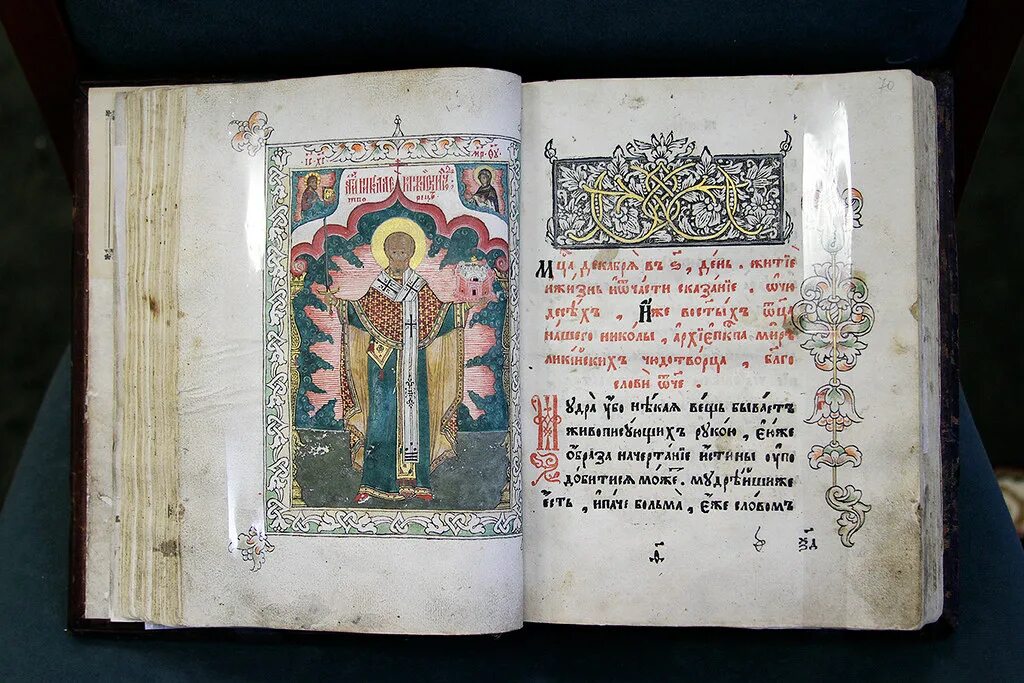 І҃С Х҃С
М҃Р Ѳ҃Ѵ
70
Мц҃а декабря въ ѕ҃, день. житїе
и жизнь и ѿчасти сказанїе. ѡ чю
десѣхъ, Иже во ст҃ыхъ ѿц҃а
нашего николы, архїеп҃кпа мирѣ
ликїискихъ чюдотворца, бл҃го
слови ѿч҃е.
Мудра ѹ҆бо нѣкая вещь бываетъ
живописующихъ рукою, е҆юже
ѻ҆браза начертанїе и҆стины ѹ҆по
добитися може. мудрѣишиже
є҆сть, и҆паче больма, є҆же словомъ